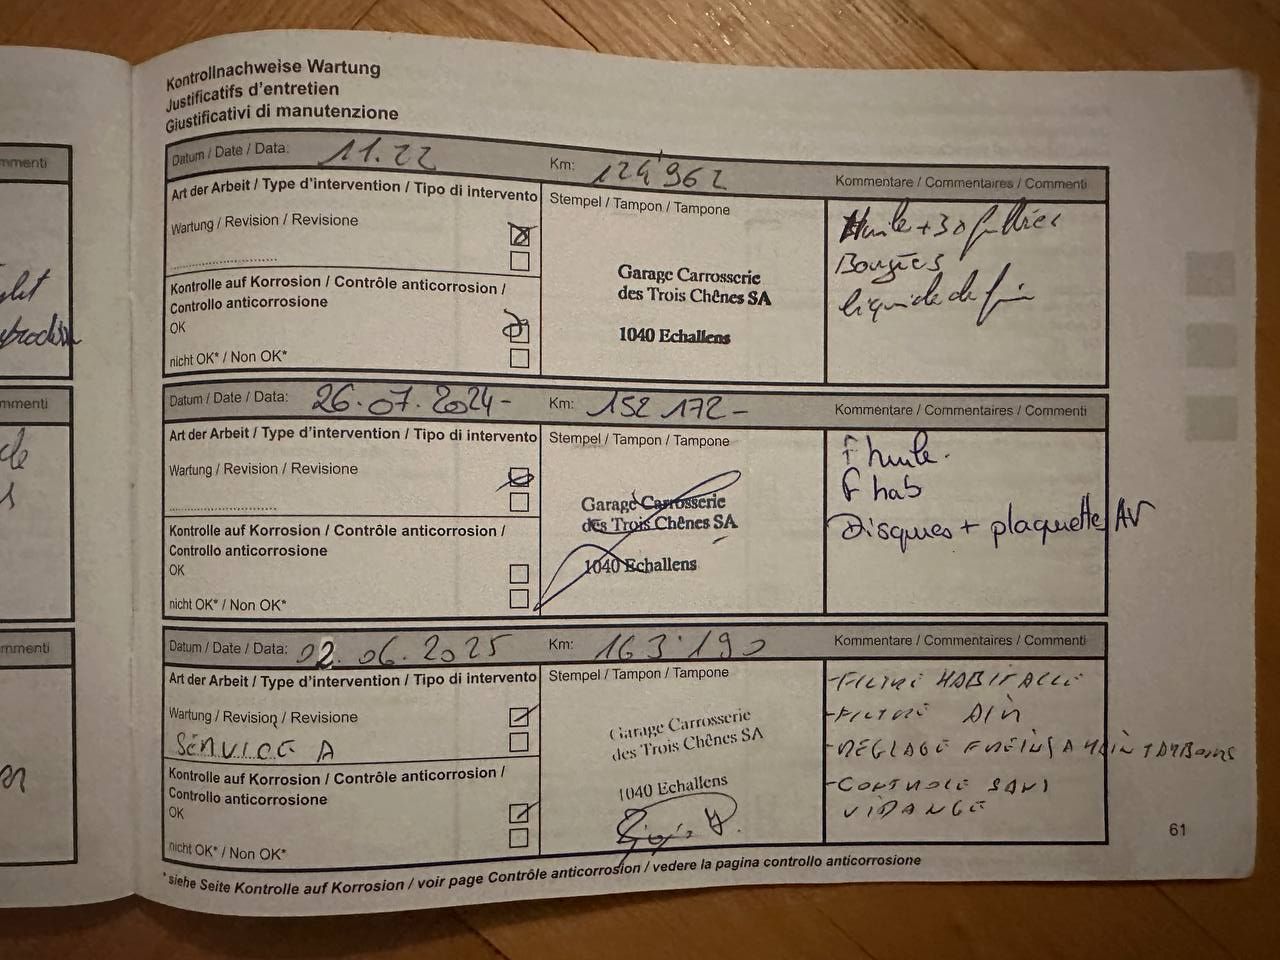 mmenti
ght
mmenti
mmenti
Kontrollnachweise Wartung
Justificatifs d'entretien
Giustificativi di manutenzione
Datum / Date / Data: 11.22 Km: 124'962 Kommentare / Commentaires / Commenti
Art der Arbeit / Type d'intervention / Tipo di intervento
Wartung / Revision / Revisione
Kontrolle auf Korrosion / Contrôle anticorrosion /
Controllo anticorrosione
OK
nicht OK* / Non OK*
Stempel / Tampon / Tampone
Garage Carrosserie
des Trois Chênes SA
1040 Echallens
Huile + 3 filtres
Bougies
liquide de frein
Datum / Date / Data: 26.07.2024- Km: 152 172- Kommentare / Commentaires / Commenti
Art der Arbeit / Type d'intervention / Tipo di intervento
Wartung / Revision / Revisione
Kontrolle auf Korrosion / Contrôle anticorrosion /
Controllo anticorrosione
OK
nicht OK* / Non OK*
Stempel / Tampon / Tampone
Garage Carrosserie
des Trois Chênes SA
1040 Echallens
F huile.
F hab
Disques + plaquette AV
Datum / Date / Data: 02.06.2025 Km: 163'190 Kommentare / Commentaires / Commenti
Art der Arbeit / Type d'intervention / Tipo di intervento
Wartung / Revision / Revisione
SERVICE A
Kontrolle auf Korrosion / Contrôle anticorrosion /
Controllo anticorrosione
OK
nicht OK* / Non OK*
Stempel / Tampon / Tampone
Garage Carrosserie
des Trois Chênes SA
1040 Echallens
-FILTRE HABITACLE
-FILTRE AIR
-REGLAGE FREINS A MAIN TAMBOURS
-CONTROLE SANS
VIDANGE
*siehe Seite Kontrolle auf Korrosion / voir page Contrôle anticorrosion / vedere la pagina controllo anticorrosione
61